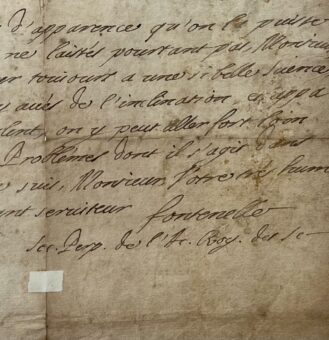 d'apparence qu'on le puisse
ne laissés pourtant pas, Monsieur
er toujours a une si belle science
aués de l'inclination, et appa
lent, on y peut aller fort loin
Problèmes dont il s'agit dans
suis, Monsieur, Votre très hum
ant seruiteur fontenelle
Sec. Perp. de l'Ac. Roy. des sc